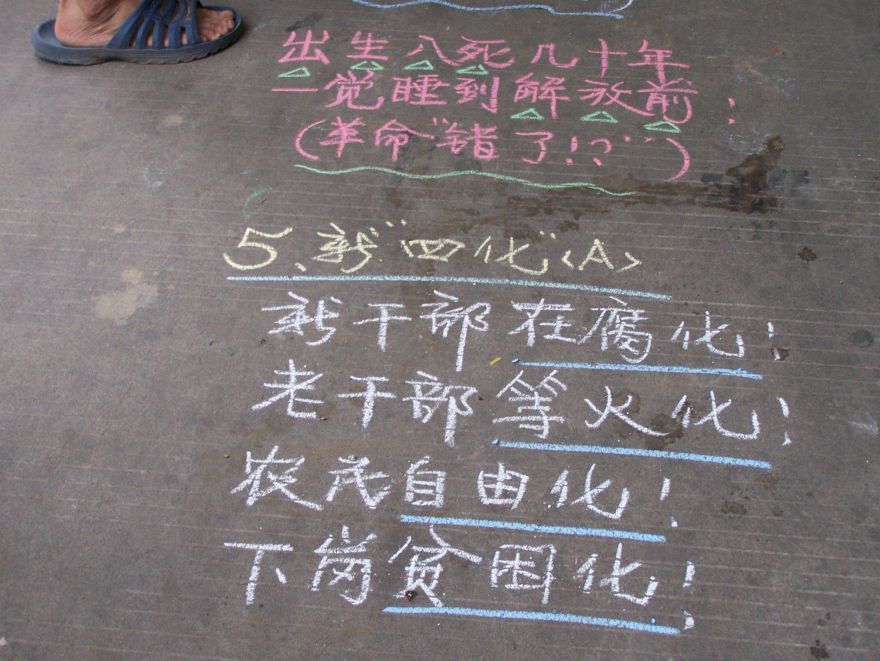 出生入死几十年
一觉睡到解放前；
(革命"错了!?")
5、新"四化"<A>
新干部在腐化；
老干部等火化；
农民自由化；
下岗贫困化；